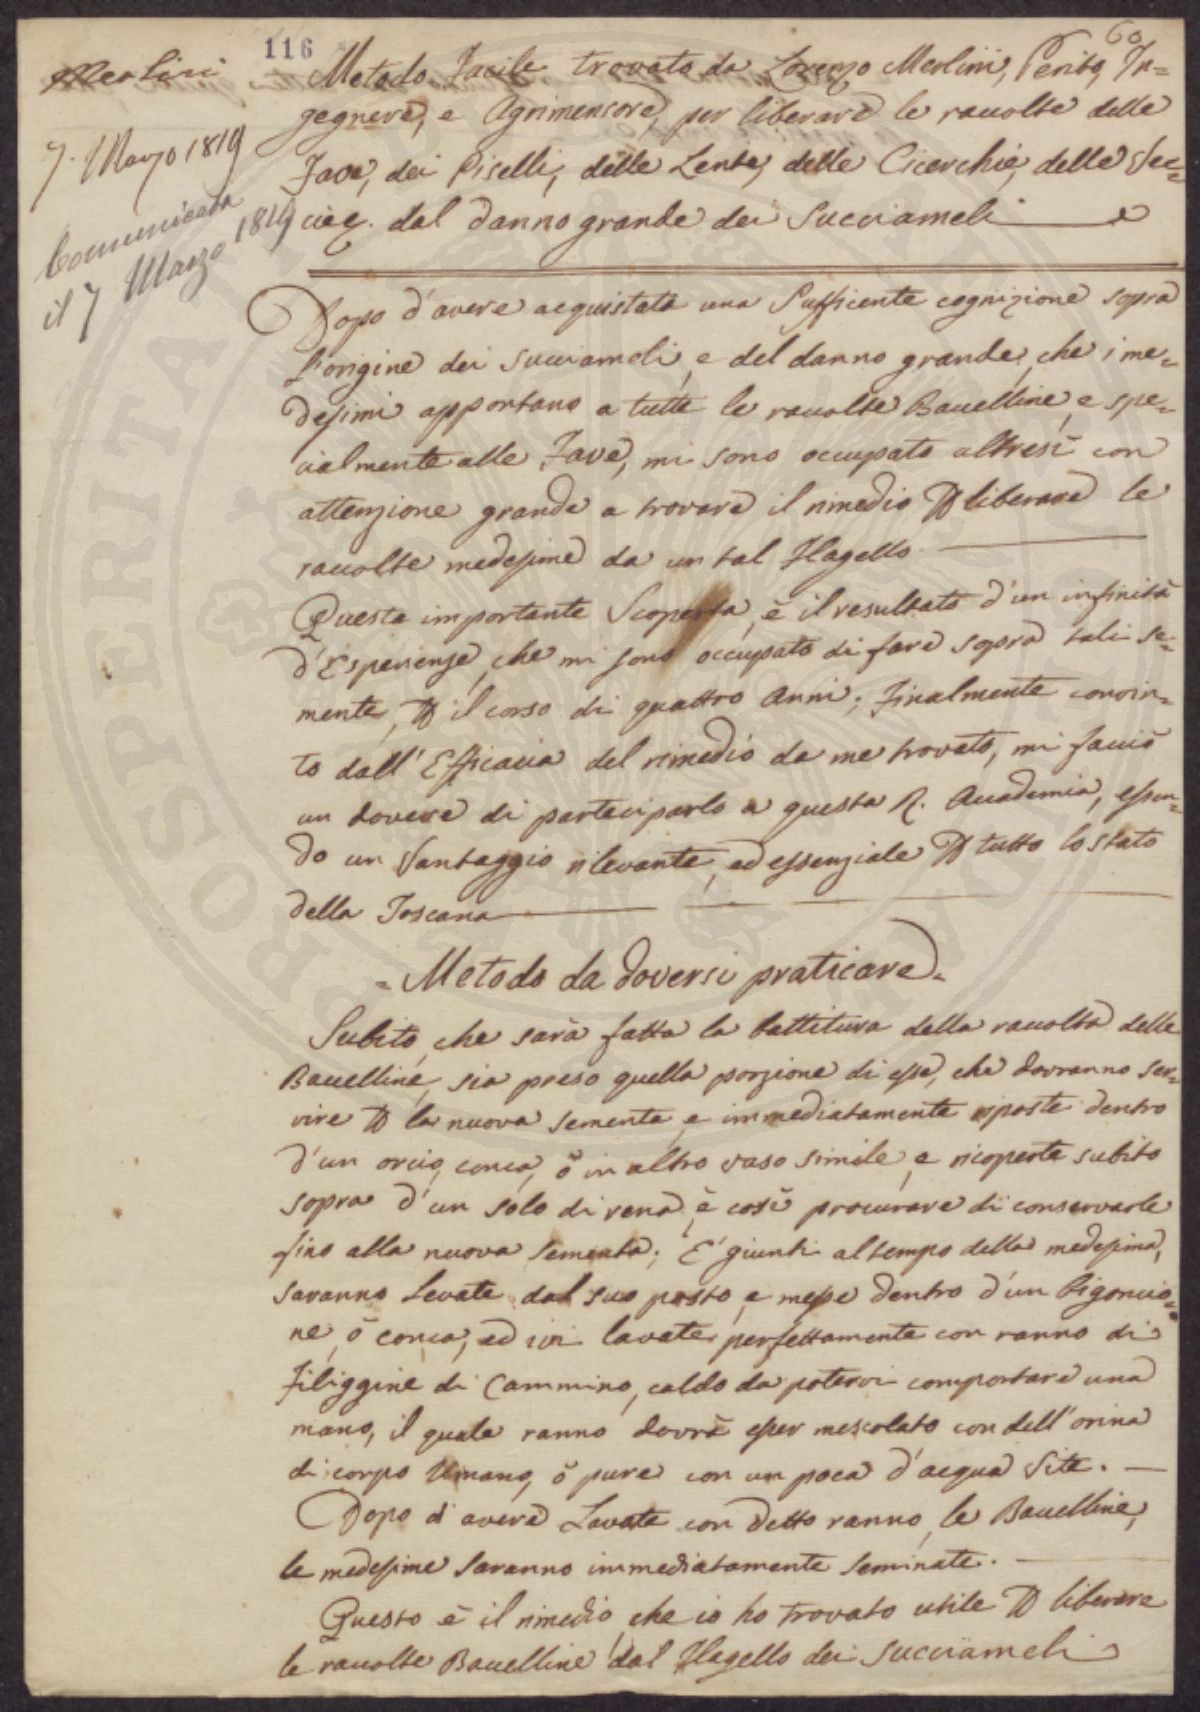 116
60
Merlini
7. Marzo 1819
Comunicata
il 7 Marzo 1819
Metodo Facile trovato da Lorenzo Merlini, Perito, In=
gegnere, e Agrimensore, per liberare le raccolte delle
Fave, dei Piselli, delle Lente, delle Cicerchie, delle Vec=
cie &. dal danno grande dei Succiameli
Dopo d'avere acquistata una Sufficente cognizione sopra
l'origine dei Succiameli, e del danno grande, che i me=
desimi apportano a tutte le raccolte Baccelline, e spe=
cialmente alle Fave, mi sono occupato altresì con
attenzione grande a trovare il rimedio P liberare le
raccolte medesime da un tal Flagello.
Questa importante Scoperta, è il resultato d'un infinità
d'Esperienze, che mi sono occupato di fare sopra tali se=
mente, P il corso di quattro Anni; Finalmente convin=
to dall'Efficacia del rimedio da me trovato, mi faccio
un dovere di parteciparlo a questa R. Accademia, essen=
do un Vantaggio rilevante, ed essenziale P tutto lo stato
della Toscana
= Metodo da doversi praticare =
Subito, che sarà fatta la battitura della raccolta delle
Baccelline, sia preso quella porzione di esse, che dovranno ser=
vire P la nuova sementa, e immediatamente riposte dentro
d'un orcio, conca, ò in altro vaso simile, e ricoperte subito
sopra d'un solo di rena, è così procurare di conservarle
fino alla nuova sementa; E' giunti al tempo della medesima,
saranno Levate dal suo posto, e messe dentro d'un bigoncio=
ne, ò conca, ed ivi lavate perfettamente con ranno di
Filiggine di Cammino, caldo da potervi comportare una
mano, il quale ranno dovrà esser mescolato con dell'orina
di corpo Umano, ò pure con un poca d'acqua Vite.
Dopo d'avere Lavate con detto ranno, le Baccelline,
le medesime saranno immediatamente seminate.
Questo è il rimedio, che io ho trovato utile P liberare
le raccolte Baccelline dal Flagello dei Succiameli
PROSPERITA